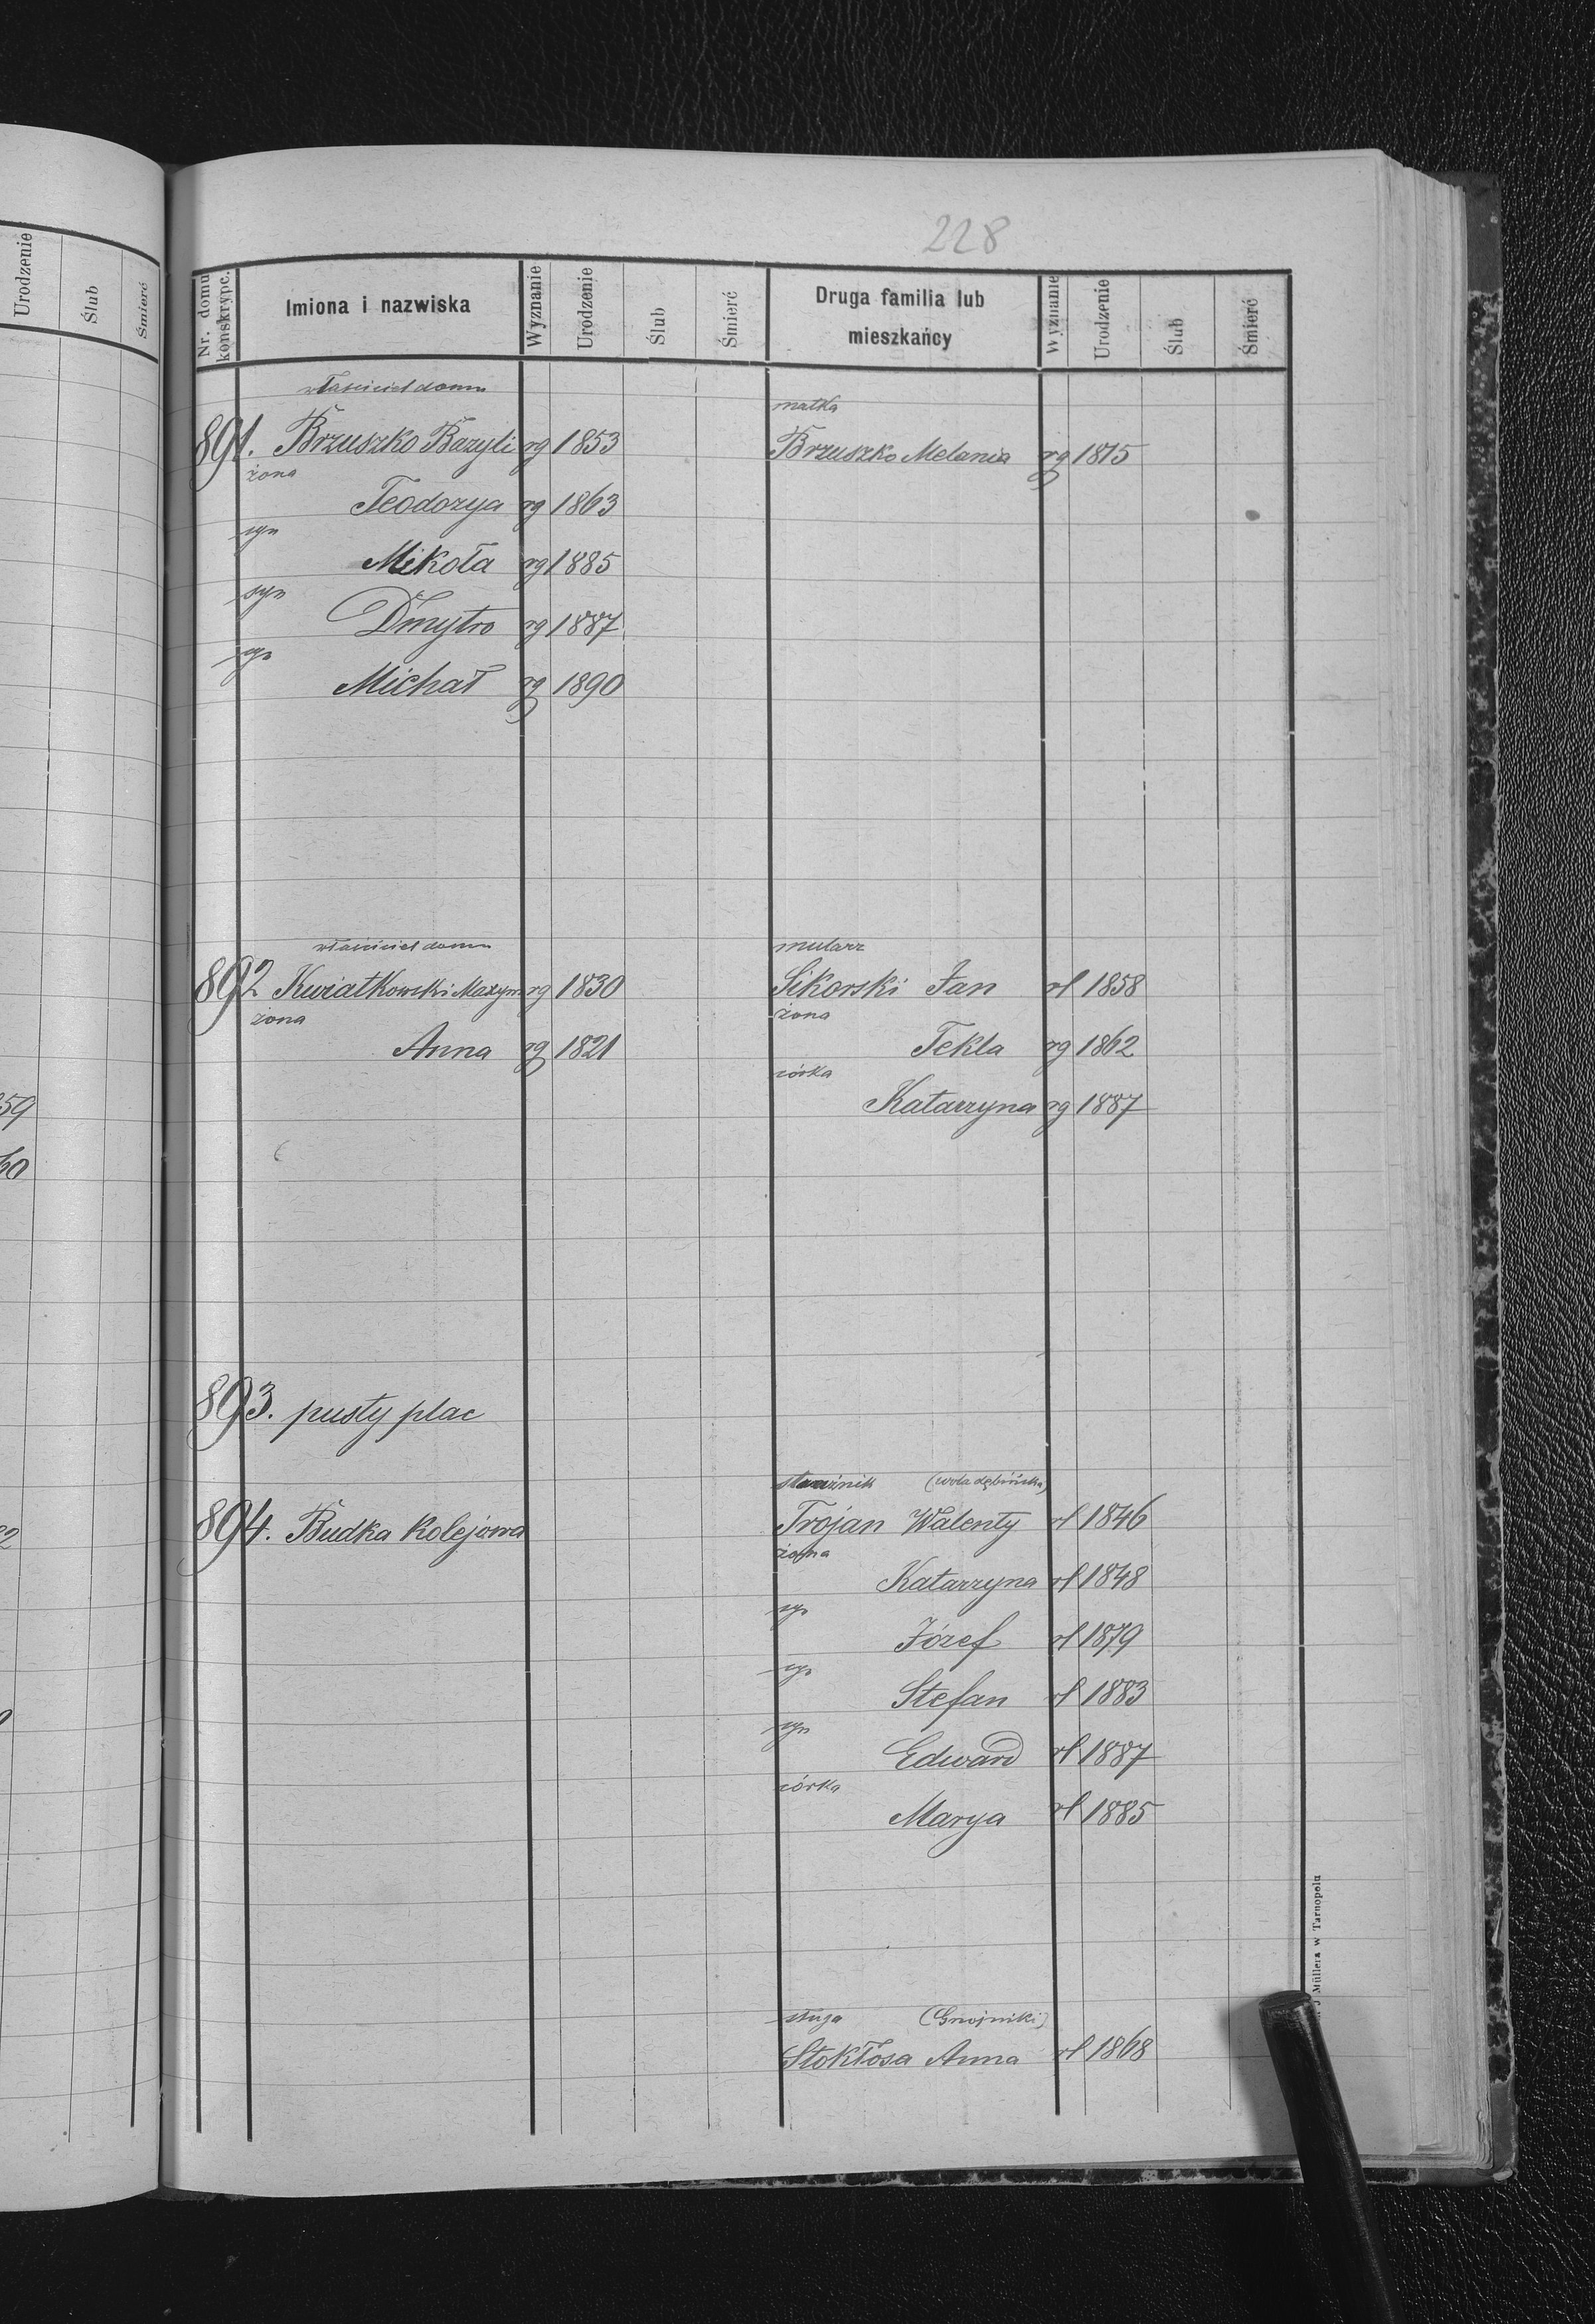 228
Urodzenie Ślub Śmierć
Nr. domu konskrypc. Imiona i nazwiska Wyznanie Urodzenie Ślub Śmierć Druga familia lub mieszkańcy Wyznanie Urodzenie Ślub Śmierć
właściciel domu
matka
891. Brzuszko Bazyli rg 1853
Brzuszko Melania rg 1815
żona
Teodozya rg 1863
syn
Mikoła rg 1885
syn
Dmytro rg 1887
syn
Michał rg 1890
właściciel domu
mularz
892 Kwiatkowski Maxym rg 1830
Sikorski Jan rł 1858
żona
żona
Anna rg 1821
Tekla rg 1862
córka
Katarzyna rg 1887
59
60
893. pusty plac
strażnik (wola dębińska)
894. Budka kolejowa
Trojan Walenty rł 1846
żona
Katarzyna rł 1848
syn
Józef rł 1879
syn
Stefan rł 1883
syn
Edward rł 1887
córka
Marya rł 1885
sługa (Gnojniki)
Stokłosa Anna rł 1868
J Müllera w Tarnopolu